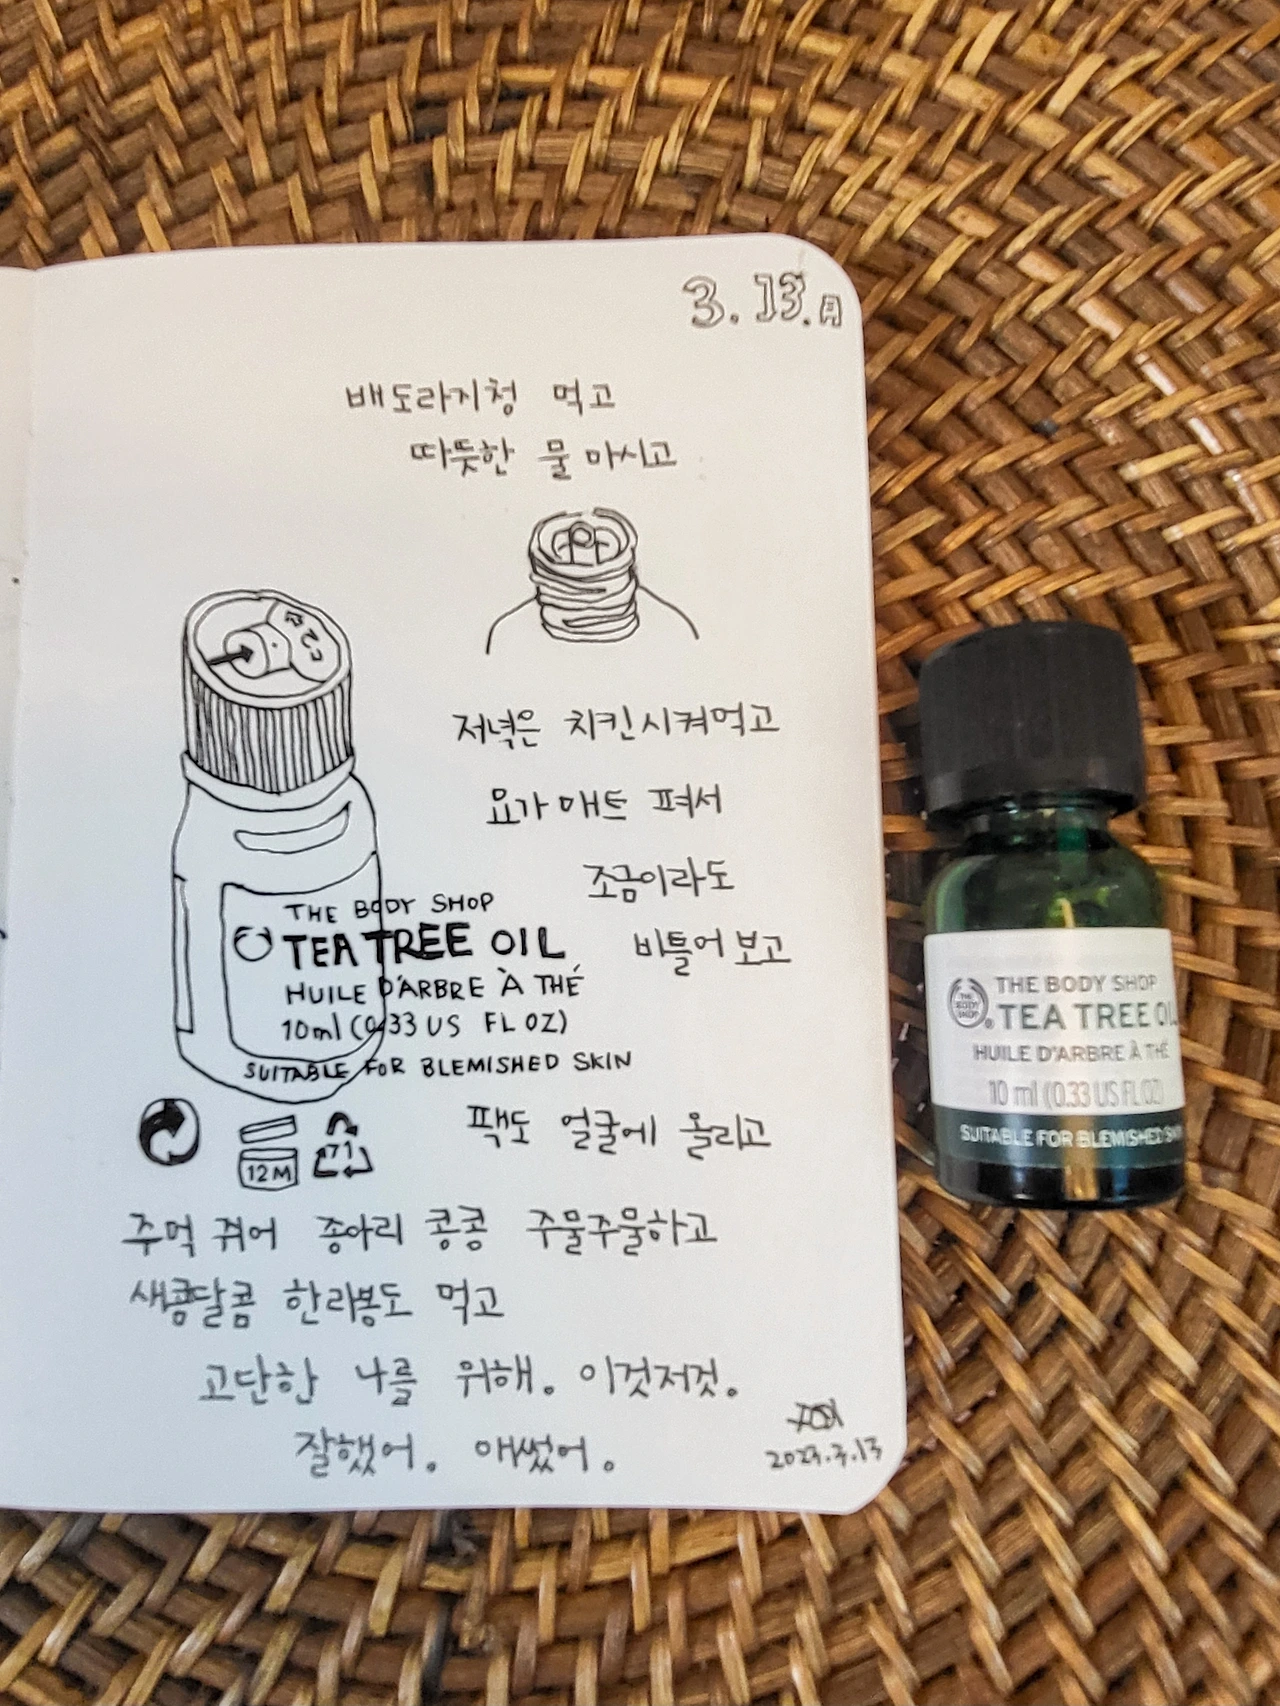 3. 13. 月
배도라지청 먹고
따뜻한 물 마시고
저녁은 치킨시켜먹고
요가매트 펴서
조금이라도
비틀어 보고
THE BODY SHOP
TEA TREE OIL
HUILE D'ARBRE À THÉ
10ml (0.33 US FL OZ)
SUITABLE FOR BLEMISHED SKIN
12M
71
팩도 얼굴에 올리고
주먹 쥐어 종아리 콩콩 주물주물하고
새콤달콤 한라봉도 먹고
고단한 나를 위해. 이것저것.
잘했어. 애썼어.
2023.3.13
THE BODY SHOP
THE BODY SHOP
TEA TREE OIL
HUILE D'ARBRE À THÉ
10 ml (0.33 US FL OZ)
SUITABLE FOR BLEMISHED SK